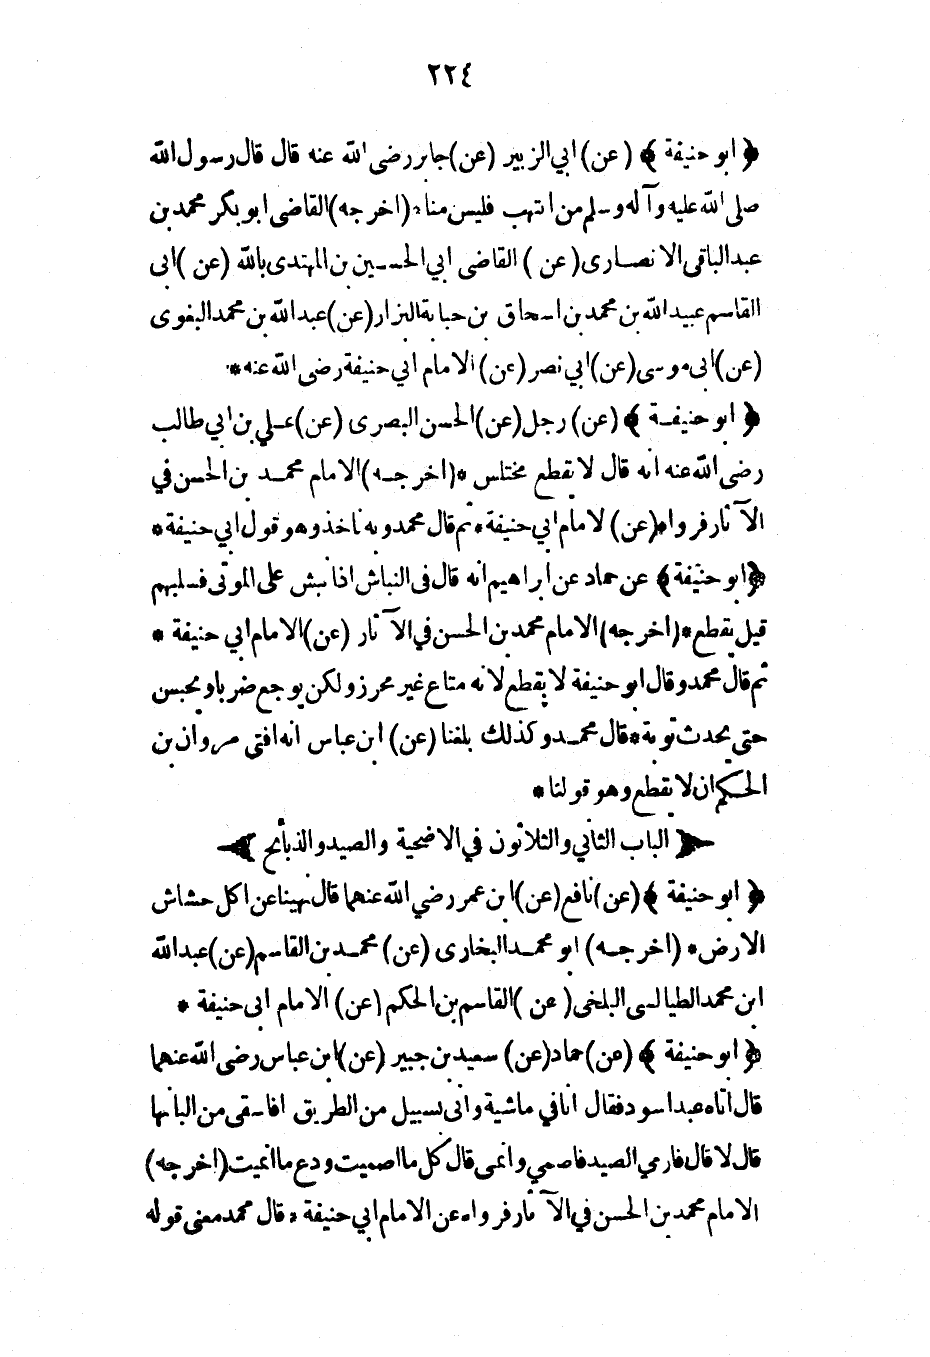 ٢٢٤
﴿ ابو حنيفة ﴾ (عن) ابي الزبير (عن) جابر رضى الله عنه قال قال رسول الله
صلى الله عليه وآله وسلم من انتهب فليس منا * (اخرجه) القاضى ابوبكر محمد بن
عبد الباقى الانصارى (عن) القاضى ابي الحسين بن المهتدى بالله (عن) ابى
القاسم عبيد الله بن محمد بن اسحاق بن حبابة البزار (عن) عبد الله بن محمد البغوى
(عن) ابى موسى (عن) ابي نصر (عن) الامام ابي حنيفة رضى الله عنه *
﴿ ابو حنيفة ﴾ (عن) رجل (عن) الحسن البصرى (عن) على بن ابي طالب
رضى الله عنه انه قال لا يقطع مختلس * (اخرجه) الامام محمد بن الحسن في
الآثار فرواه (عن) الامام ابي حنيفة * ثم قال محمد وبه ناخذ وهو قول ابي حنيفة *
﴿ ابو حنيفة ﴾ عن حماد عن ابراهيم انه قال فى النباش اذا نبش على الموتى فسلبهم
قيل يقطع * (اخرجه) الامام محمد بن الحسن في الآثار (عن) الامام ابي حنيفة *
ثم قال محمد وقال ابو حنيفة لا يقطع لانه متاع غير محرز ولكن يوجع ضربا ويحبس
حتى يحدث توبة * قال محمد وكذلك بلغنا (عن) ابن عباس انه افتى مروان بن
الحكم ان لا يقطع وهو قولنا *
﴿ الباب الثاني والثلاثون في الاضحية والصيد والذبائح ﴾
﴿ ابو حنيفة ﴾ (عن) نافع (عن) ابن عمر رضي الله عنهما قال نهينا عن اكل حشاش
الارض * (اخرجه) ابو محمد البخارى (عن) محمد بن القاسم (عن) عبد الله
ابن محمد الطيالسى البلخى (عن) القاسم بن الحكم (عن) الامام ابى حنيفة *
﴿ ابو حنيفة ﴾ (عن) حماد (عن) سعيد بن جبير (عن) ابن عباس رضى الله عنهما
قال اتاه عبد اسود فقال انا في ماشية وانى بسبيل من الطريق افاسقى من البانها
قال لا قال فارمي الصيد فاصمي وانمى قال كل ما اصميت ودع ما انميت (اخرجه)
الامام محمد بن الحسن في الآثار فرواه عن الامام ابي حنيفة * قال محمد معنى قوله